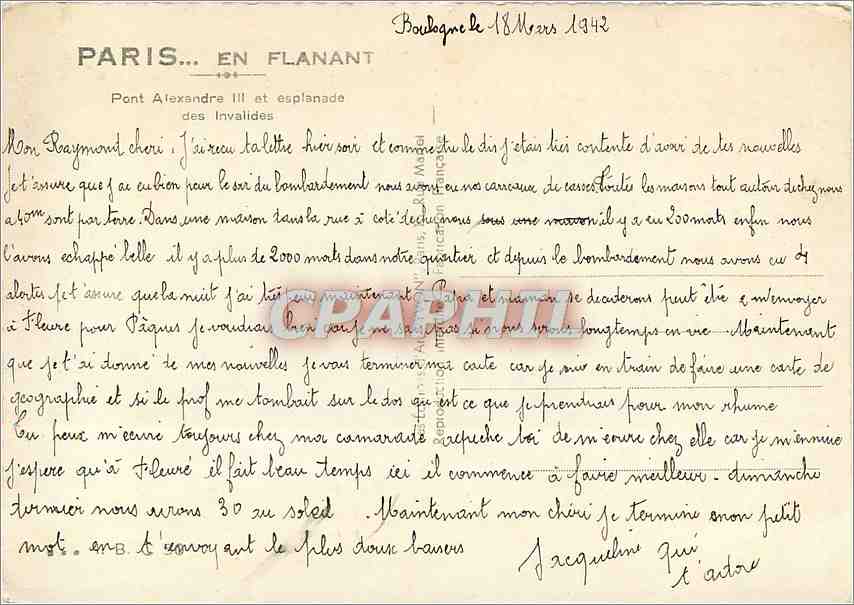 Boulogne le 18 Mars 1942
PARIS... EN FLANANT
Pont Alexandre III et esplanade
des Invalides
Mon Raymond cheri. J'ai recu ta lettre hier soir et comme tu le dis j'etais très contente d'avoir de tes nouvelles
Je t'assure que j'ai eu bien peur le soir du bombardement nous avons eu nos carreaux de casses. Toutes les maisons tout autour de chez nous
a 50m sont par terre. Dans une maison dans la rue à coté de chez nous sous une maison il y a eu 200 morts enfin nous
l'avons echappé belle il y a plus de 2000 morts dans notre quartier et depuis le bombardement nous avons eu 4
alertes je t'assure que la nuit j'ai très peur maintenant. Papa et maman se deciderons peut être a m'envoyer
à Fleure pour Pâques je voudrais bien car je ne sais pas si nous serons longtemps en vie. Maintenant
que je t'ai donné de mes nouvelles je vais terminer ma carte car je suis en train de faire une carte de
geographie et si le prof me tombait sur le dos qu'est ce que je prendrais pour mon rhume
Tu peux m'ecrire toujours chez ma camarade depeche toi de m'ecrire chez elle car je m'ennuie
j'espere qu'à Fleuré il fait beau temps ici il commence à faire meilleur - dimanche
dernier nous avions 30 au soleil. Maintenant mon chéri je termine mon petit
mot en t'envoyant le plus doux baisers
Jacqueline qui
t'adore
CPAPHIL
Reproduction Interdite
Fabrication Française